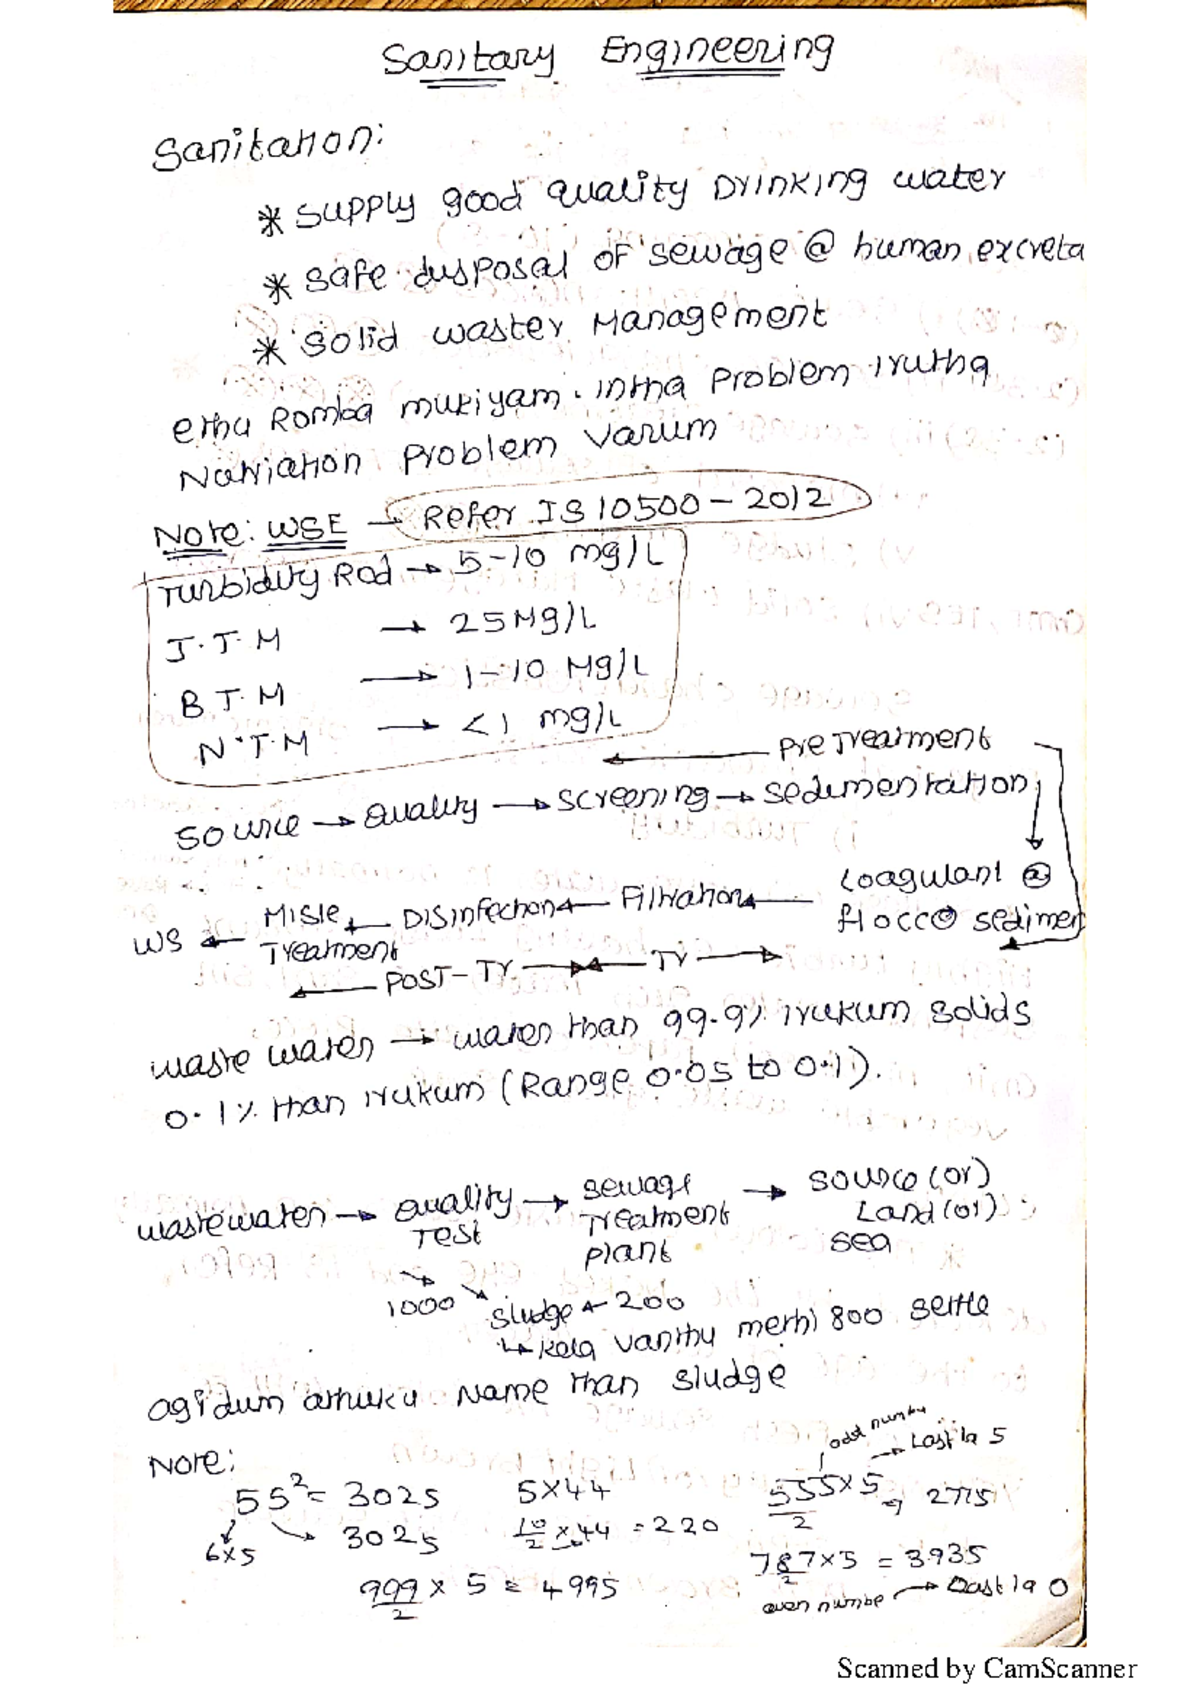 Sanitary Engineering
Sanitation:
* Supply good quality Drinking water
* Safe disposal of sewage @ human excreta
* Solid Waster Management
ethu Romba mukiyam. Intha Problem Irutha
Problem Varum
Note: WSE → Refer IS 10500 - 2012
Turbidity Rod → 5-10 mg/L
J.T.M → 25 Mg/L
B T.M → 1-10 Mg/L
N.T.M → <1 mg/L
← Pre Treatment
Source → Quality → Screening → Sedimentation
Coagulant @
WS ← Misle Treatment ← Disinfection ← Filtration ← flocco sedimen
← POST-Tr → ← Tr →
Waste water → water than 99.9% irukum solids
0.1% than irukum (Range 0.05 to 0.1).
wastewater → Quality Test → Sewage Treatment plant → Source (or) Land (or) Sea
1000
Sludge ← 200
↳ kela vanthu methi 800 settle
agidum athuku Name than sludge
Note:
odd number → Last la 5
55² = 3025
5×44
555/2 ×5 ⇒ 2775
6×5
3025
10/2 ×44 = 220
787/2 ×5 = 3935
999/2 × 5 = 4995
even numbe → Last la 0
Scanned by CamScanner